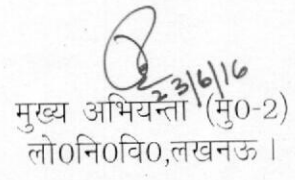 23/6/16
मुख्य अभियन्ता (मु0-2)
लो0नि0वि0,लखनऊ ।